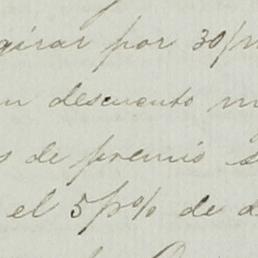 girar por 30/m
un descuento m
s de premio s
el 5 p% de d